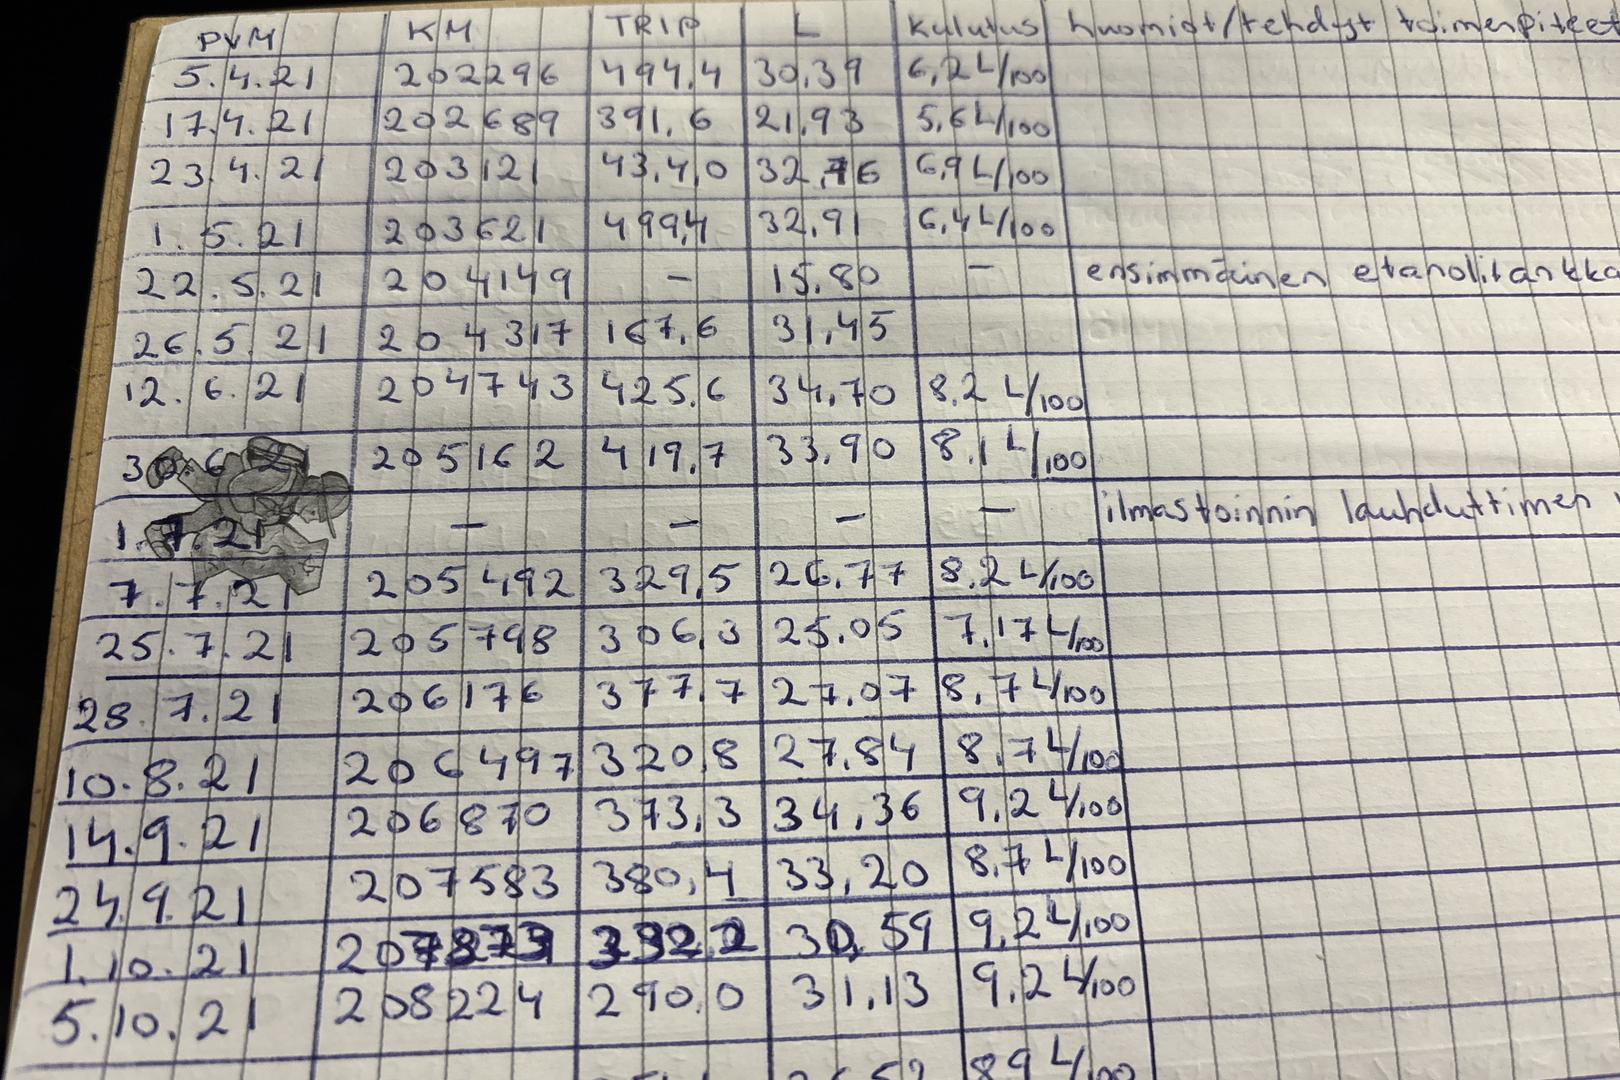 PVM KM TRIP L Kulutus huomiot/tehdyt toimenpiteet
5.4.21 202296 494,4 30,39 6,2 L/100
17.4.21 202689 391,6 21,93 5,6 L/100
23.4.21 203121 43,4,0 32,76 6,9 L/100
1.5.21 203621 499,4 32,91 6,4 L/100
22.5.21 204149 - 15.80 - ensimmäinen etanolitankka
26.5.21 204317 167,6 31,45
12.6.21 204743 425,6 34,70 8,2 L/100
30.6.21 205162 419,7 33,90 8,1 L/100
1.7.21 - - - - ilmastoinnin lauhduttimen
7.7.21 205492 329,5 26,77 8,2 L/100
25.7.21 205798 306,3 25.05 7,17 L/100
28.7.21 206176 377,7 27,07 8,7 L/100
10.8.21 206497 320,8 27,84 8,7 L/100
14.9.21 206870 373,3 34,36 9,2 L/100
24.9.21 207583 380,4 33,20 8,7 L/100
1.10.21 30,59 9,2 L/100
5.10.21 208224 290,0 31,13 9,2 L/100